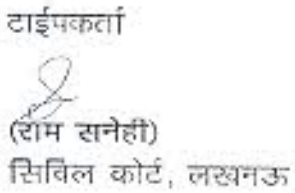 टाईपकर्ता
(राम सनेही)
सिविल कोर्ट, लखनऊ